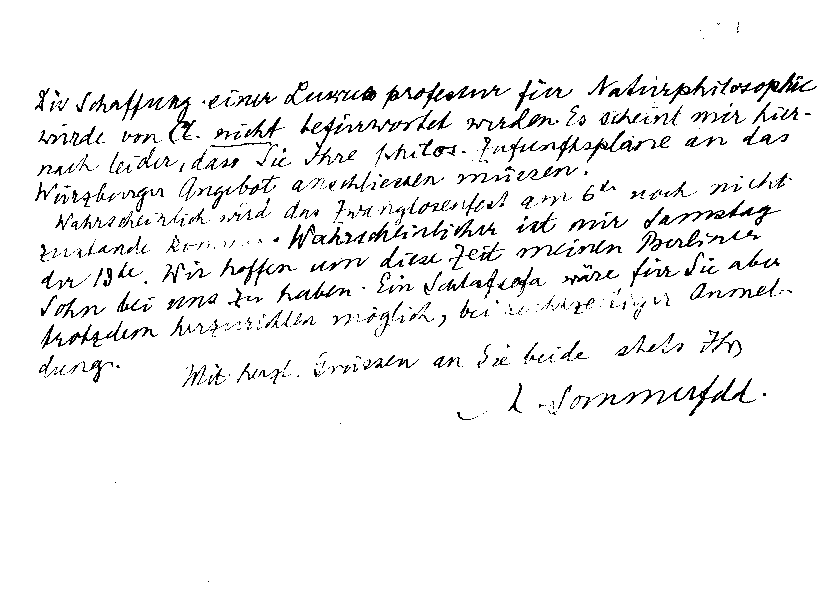 Die Schaffung einer Luxusprofessur für Naturphilosophie
würde von Cl. nicht befürwortet werden. Es scheint mir hier-
nach leider, dass Sie Ihre philos. Zukunftspläne an das
Würzburger Angebot anschliessen müssen.
Wahrscheinlich wird das Zwanglosenfest am 6ten noch nicht
zustande kommen. Wahrscheinlicher ist mir Samstag
der 13te. Wir hoffen um diese Zeit meinen Berliner
Sohn bei uns zu haben. Ein Schlafsofa wäre für Sie aber
trotzdem herzurichten möglich, bei rechtzeitiger Anmel-
dung.
Mit herzl. Grüssen an Sie beide stets Ihr
A. Sommerfeld.